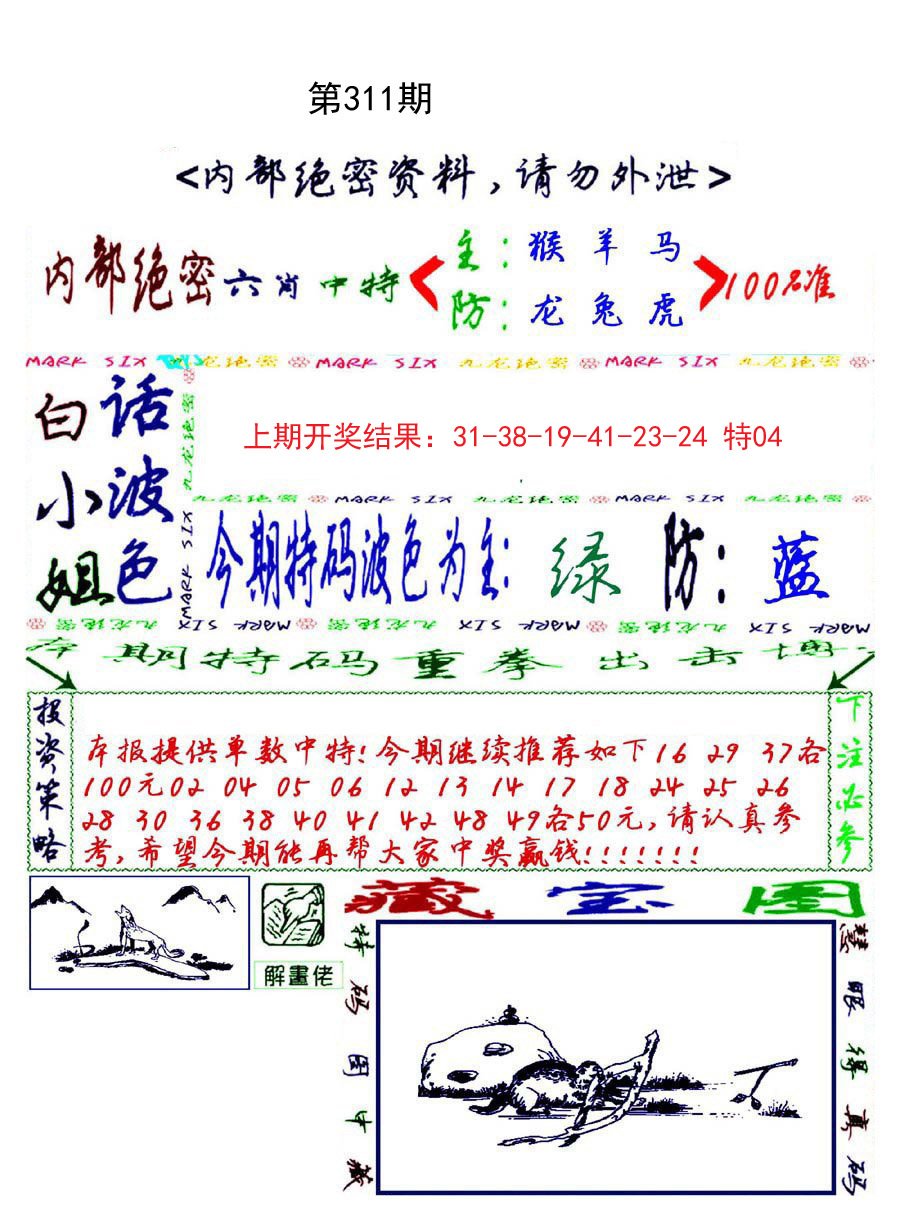 第311期
<内部绝密资料,请勿外泄>
内部绝密六肖中特
主:猴羊马
防:龙兔虎
100%准
MARK SIX 九龙绝密 MARK SIX 九龙绝密 MARK SIX 九龙绝密
白话
小波
姐色
九龙绝密 MARK SIX
上期开奖结果：31-38-19-41-23-24 特04
九龙绝密 MARK SIX 九龙绝密 MARK SIX 九龙绝密
今期特码波色为主: 绿 防: 蓝
MARK SIX 九龙绝密 MARK SIX 九龙绝密 MARK SIX 九龙绝密 MARK SIX
本期特码重拳出击博
投资策略
本报提供单数中特!今期继续推荐如下16 29 37各
100元02 04 05 06 12 13 14 17 18 24 25 26
28 30 36 38 40 41 42 48 49各50元,请认真参
考,希望今期能再帮大家中奖赢钱!!!!!!!
下注必参
解畫佬
藏宝图
特码图中藏
慧眼得真码